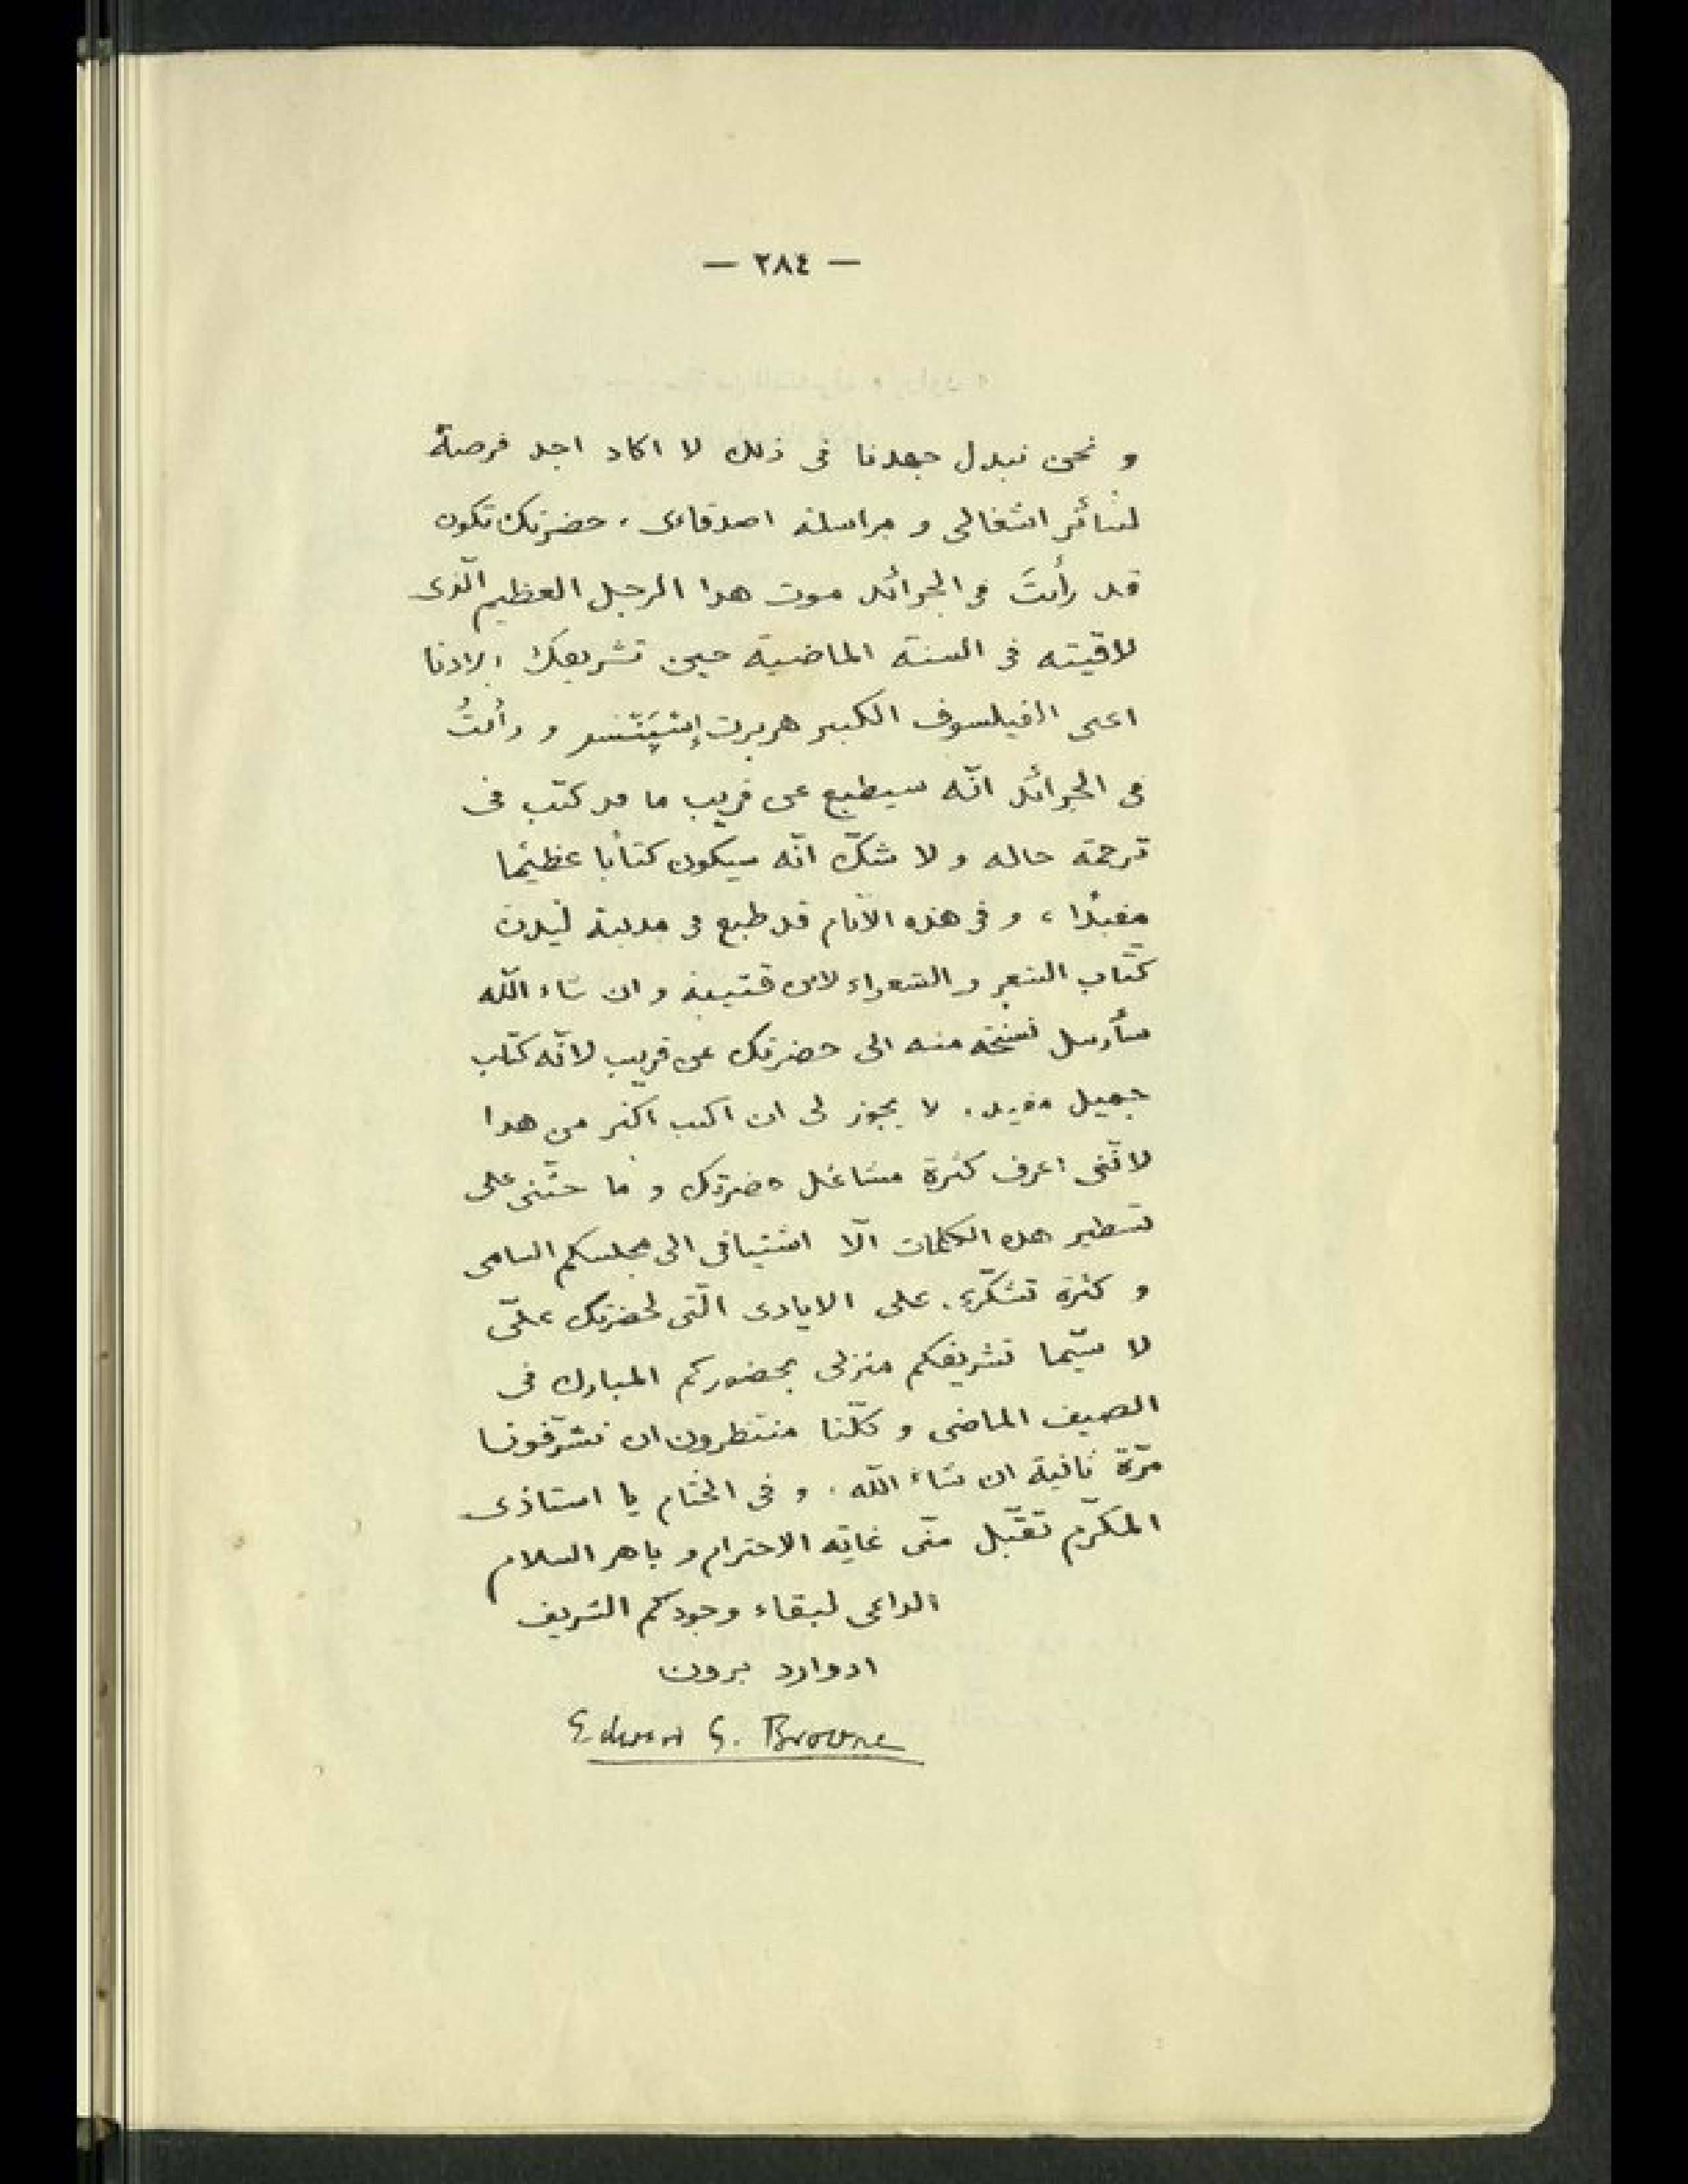 — ٢٨٤ —
و نحن نبذل جهدنا فى ذلك لا اكاد اجد فرصة
لسائر اشغالى و مراسلة اصدقائى ، حضرتك تكون
قد رأيتَ فى الجرائد موت هذا الرجل العظيم الّذى
لاقيته فى السنة الماضية حين تشريفك بلادنا
اعنى الفيلسوف الكبير هربرت إسْپِنْسر و رأيتُ
فى الجرائد انّه سيطبع عن قريب ما قد كتب فى
ترجمة حاله و لا شكّ انّه سيكون كتابًا عظيمًا
مفيدًا ، و فى هذه الايّام قد طبع فى مدينة ليدن
كتاب الشعر و الشعراء لابن قتيبة و ان شاء اللّه
سأرسل نسخة منه الى حضرتك عن قريب لانّه كتاب
جميل مفيد . لا يجوز لى ان اكتب اكثر من هذا
لانّنى اعرف كثرة مشاغل حضرتك و ما حثّنى على
تسطير هذه الكلمات الّا اشتياقى الى مجلسكم السامى
و كثرة تشكّرى على الايادى الّتى لحضرتك علىّ
لا سيّما تشريفكم منزلى بحضوركم المبارك فى
الصيف الماضى و كلّنا منتظرون ان تشرّفونا
مرّة ثانية ان شاء اللّه . و فى الختام يا استاذى
المكرّم تقبّل منّى غاية الاحترام و باهر السلام
الداعى لبقاء وجودكم الشريف
ادوارد برون
Edward G. Browne